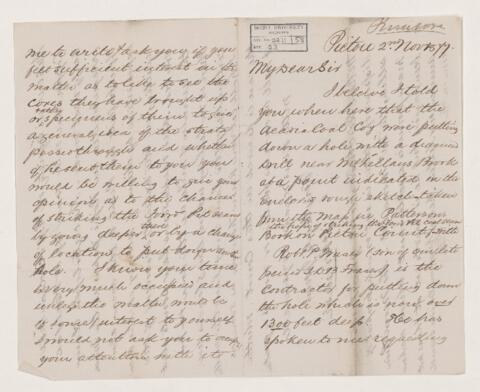 Pictou 2nd Nov 1877.
My dear Sir
I believe I told
you when here that the
Acadia Coal Coy were putting
down a hole with a diamond
drill near McLellans Brook
at a point indicated in the
enclosed rough sketch taken
from the map in Patterson
the hope of striking the
Book on Pictou County with
Robt. P. Fraser (son of
Fraser) is the
Contractor for putting down
the hole which is now over
1300 feet deep. He has
spoken to me requesting
me to write & ask you if you
felt sufficient interest in the
matter as to like to see the
cores they have brought up
or specimens of them to give
a general idea of the strata
passed through and whether
if he sent them to you you
would be willing to give your
opinion as to the chances
of striking the
by going deeper, or by a change
of location, to put down
hole. I know your time
is very much occupied and
unless the matter must be
of some interest to yourself
I would not ask you to
your attention with it